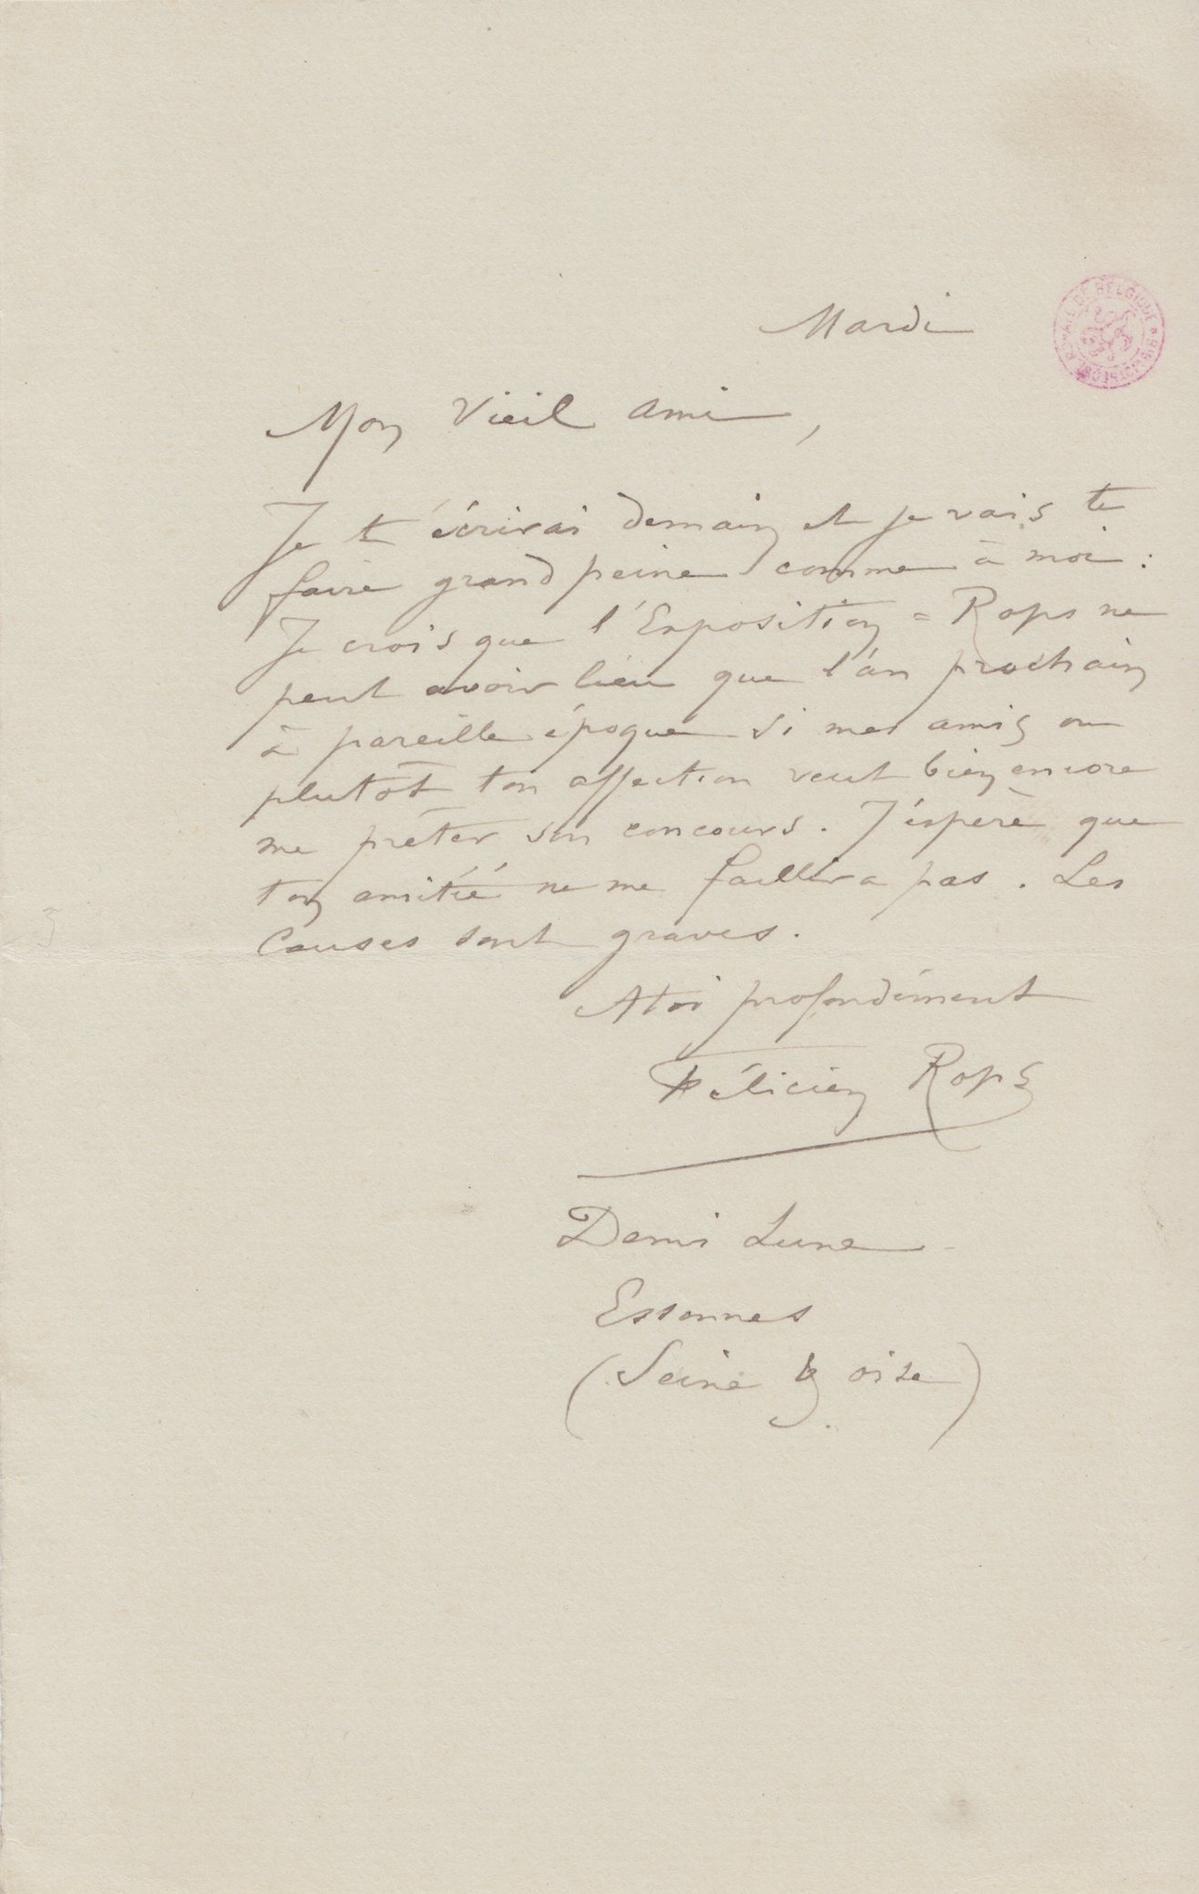 Mardi
BIBLIOTHÈQUE ROYALE DE BELGIQUE
Mon Vieil ami,
Je t'écrirai demain et je vais te
faire grand peine comme à moi :
Je crois que l'Exposition = Rops ne
peut avoir lieu que l'an prochain
à pareille époque si mes amis ou
plutôt ton affection veut bien encore
me prêter son concours. J'éspère que
ton amitié ne me faillira pas. Les
Causes sont graves.
A toi profondément
Félicien Rops
Demi Lune
Essonnes
(Seine & oise)